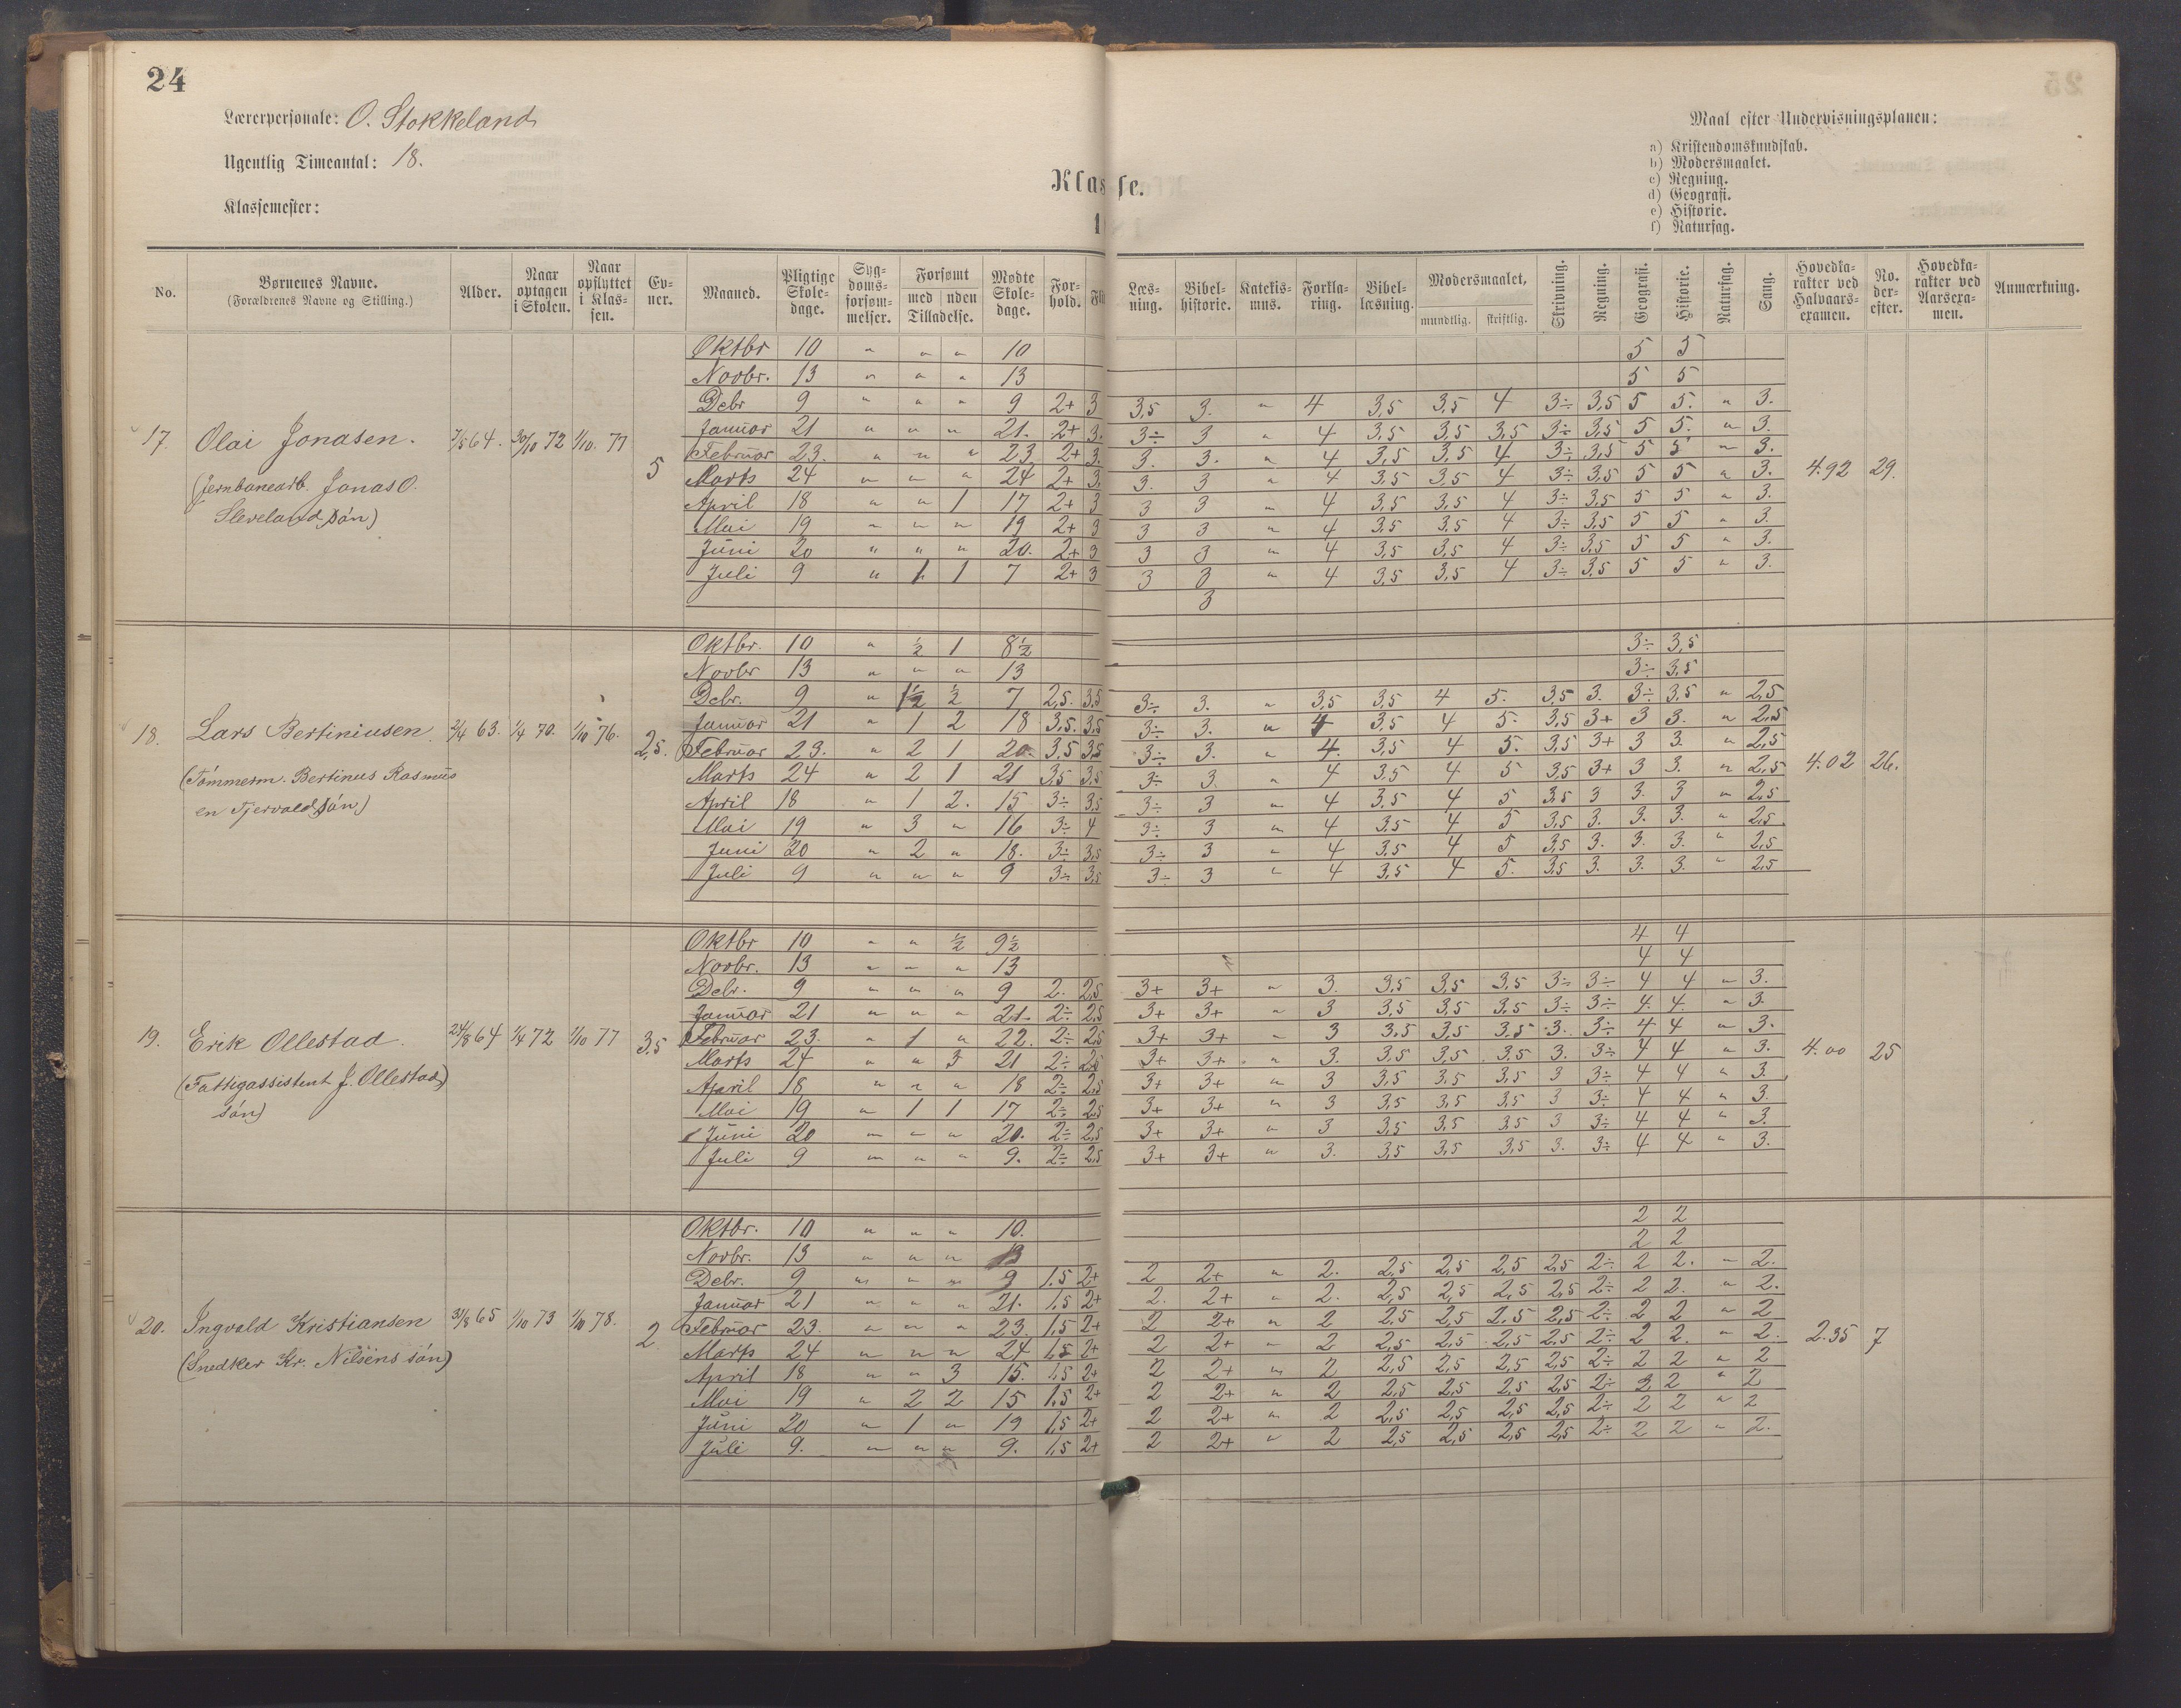 24
Lærerpersonale: O. Stokkeland
Ugentlig Timeantal: 18.
Klassemester:
Klasse.
Maal efter Undervisningsplanen:
a) Kristendomskundskab.
b) Modersmaalet.
c) Regning.
d) Geografi.
e) Historie.
f) Naturfag.
No. | Børnenes Navne. (Forældrenes Navne og Stilling.) | Alder. | Naar optagen i Skolen. | Naar opflyttet i Klassen. | Evner. | Maaned. | Pligtige Skoledage. | Sygdomsforsømmelser. | Forsømt med Tilladelse. | uden Tilladelse. | Mødte Skoledage. | Forhold. | Fli | Læsning. | Bibelhistorie. | Katekismus. | Forklaring. | Bibellæsning. | Modersmaalet, mundtlig. | skriftlig. | Skrivning. | Regning. | Geografi. | Historie. | Naturfag. | Sang. | Hovedkarakter ved Halvaarsexamen. | No. derefter. | Hovedkarakter ved Aarsexamen. | Anmærkning.
17. Olai Jonasen. 7/5 64. 30/10 72 1/10. 77 5 4.92 29.
(Jernbanearb. Jonas O.
Sleveland, sön)
Oktbr 10 " " " 10 5 5
Novbr. 13 " " " 13 5 5
Debr 9 " " " 9 2+ 3 3,5 3. " 4 3,5 3,5 4 3÷ 3,5 5 5. " 3.
Januar 21 " " " 21. 2+ 3. 3÷ 3 " 4 3,5 3,5 3,5 3÷ 3,5 5 5. " 3.
Februar 23. " " " 23 2+ 3. 3. 3. " 4 3,5 3,5 4 3÷ 3,5 5 5 " 3.
Marts 24 " " " 24 2+ 3. 3. 3 " 4 3,5 3,5 4 3÷ 3,5 5 5 " 3.
April 18 " " 1 17 2+ 3 3 3 " 4 3,5 3,5 4 3÷ 3,5 5 5 " 3.
Mai 19 " " " 19 2+ 3 3 3 " 4 3,5 3,5 4 3÷ 3,5 5 5 " 3.
Juni 20 " " " 20. 2+ 3 3 3 " 4 3,5 3,5 4 3÷ 3,5 5 5 " 3.
Juli 9 " 1 1 7 2+ 3 3 3 " 4 3,5 3,5 4 3÷ 3,5 5 5 " 3.
3
18. Lars Bertiniusen 2/4 63. 1/4 70. 1/10 76. 2,5. 4.02 26.
(Tömmerm. Bertinus Rasmus
en Tjervolds sön)
Oktbr. 10 " ½ 1 8½ 3÷ 3,5
Novbr 13 " " " 13 3÷ 3,5
Debr. 9 " 1½ ½ 7 2,5. 3,5 3÷ 3. " 3,5 3,5 4 5. 3,5 3. 3÷ 3,5 " 2,5
Januar 21 " 1 2 18 3,5. 3,5 3÷ 3. " 4 3,5 4 5. 3,5 3+ 3 3. " 2,5
Februar 23. " 2 1 20. 3,5 3,5 3÷ 3. " 4. 3,5 4 5. 3,5 3+ 3 3. " 2,5
Marts 24 " 2 1 21 3,5 3,5 3÷ 3. " 4 3,5 4 5 3,5 3+ 3 3. " 2,5
April 18 " 1 2. 15 3÷ 3,5 3÷ 3 " 4 3,5 4 5 3,5 3 3. 3 " 2,5
Mai 19 " 3 " 16 3÷ 4 3÷ 3 " 4 3,5 4 5 3,5 3. 3. 3. " 2,5.
Juni 20 " 2 " 18. 3÷ 3,5 3÷ 3 " 4 3,5 4 5 3,5 3. 3. 3. " 2,5
Juli 9 " " " 9 3÷ 3,5 3÷ 3 " 4 3,5 4 5. 3,5 3. 3. 3. " 2,5
19. Erik Ollestad. 24/8 64 1/4 72 1/10 77 3,5 4.00 25
(Fattigassistent J. Ollestad,
sön)
Oktbr 10 " " ½ 9½ 4 4
Novbr. 13 " " " 13 4 4
Debr. 9 " " " 9 2. 2,5 3+ 3+ " 3. 3,5 3,5 3,5 3÷ 3÷ 4 4 " 3.
Januar 21 " " " 21. 2÷ 2,5 3+ 3+ " 3 3,5 3,5 3,5 3÷ 3÷ 4. 4. " 3.
Februar 23. " 1 " 22. 2÷ 2,5 3+ 3+ " 3 3,5 3,5 3,5 3. 3÷ 4 4 " 3.
Marts 24 " " 3 21 2÷ 2,5 3+ 3+ " 3. 3,5 3,5 3,5 3. 3÷ 4 4 " 3.
April 18 " " " 18 2÷ 2,5 3+ 3+ " 3 3,5 3,5 3,5 3 3÷ 4 4 " 3.
Mai 19 " 1 1 17 2÷ 2,5 3+ 3+ " 3 3,5 3,5 3,5 3 3÷ 4 4 " 3.
Juni 20 " " " 20. 2÷ 2,5 3+ 3+ " 3 3,5 3,5 3,5 3 3÷ 4 4 " 3.
Juli 9 " " " 9. 2÷ 2,5 3+ 3+ " 3. 3,5 3,5 3,5 3. 3÷ 4 4 " 3.
20. Ingvald Kristiansen 31/8 65 1/10 73 1/10 78. 2 2.35 7
(Snedker Kr. Nilsens sön)
Oktbr. 10 " " " 10. 2 2
Novbr. 13 " " " 13 2 2
Debr. 9 " " " 9 1,5 2+ 2 2+ " 2. 2,5 2,5 2,5 2,5 2÷ 2 2. " 2.
Januar 21 " " " 21. 1,5 2+ 2. 2+ " 2. 2,5 2,5 2,5 2,5 2÷ 2 2. " 2.
Februar 23. " " " 23. 1,5 2+ 2 2+ " 2 2,5 2,5 2,5 2,5 2÷ 2 2 " 2
Marts 24 " " " 24 1,5 2+ 2 2+ " 2 2,5 2,5 2,5 2,5 2÷ 2 2. " 2.
April 18 " " 3 15. 1,5 2+ 2 2+ " 2 2,5 2,5 2,5 2,5 2÷ 2 2 " 2
Mai 19 " 2 2 15 1,5 2+ 2 2+ " 2 2,5 2,5 2,5 2,5 2÷ 2 2 " 2
Juni 20 " 1 " 19 1,5 2+ 2 2+ " 2 2,5 2,5 2,5 2,5 2÷ 2 2 " 2
Juli 9. " " " 9. 1,5 2+ 2 2+ " 2 2,5 2,5 2,5 2,5 2÷ 2 2 " 2.